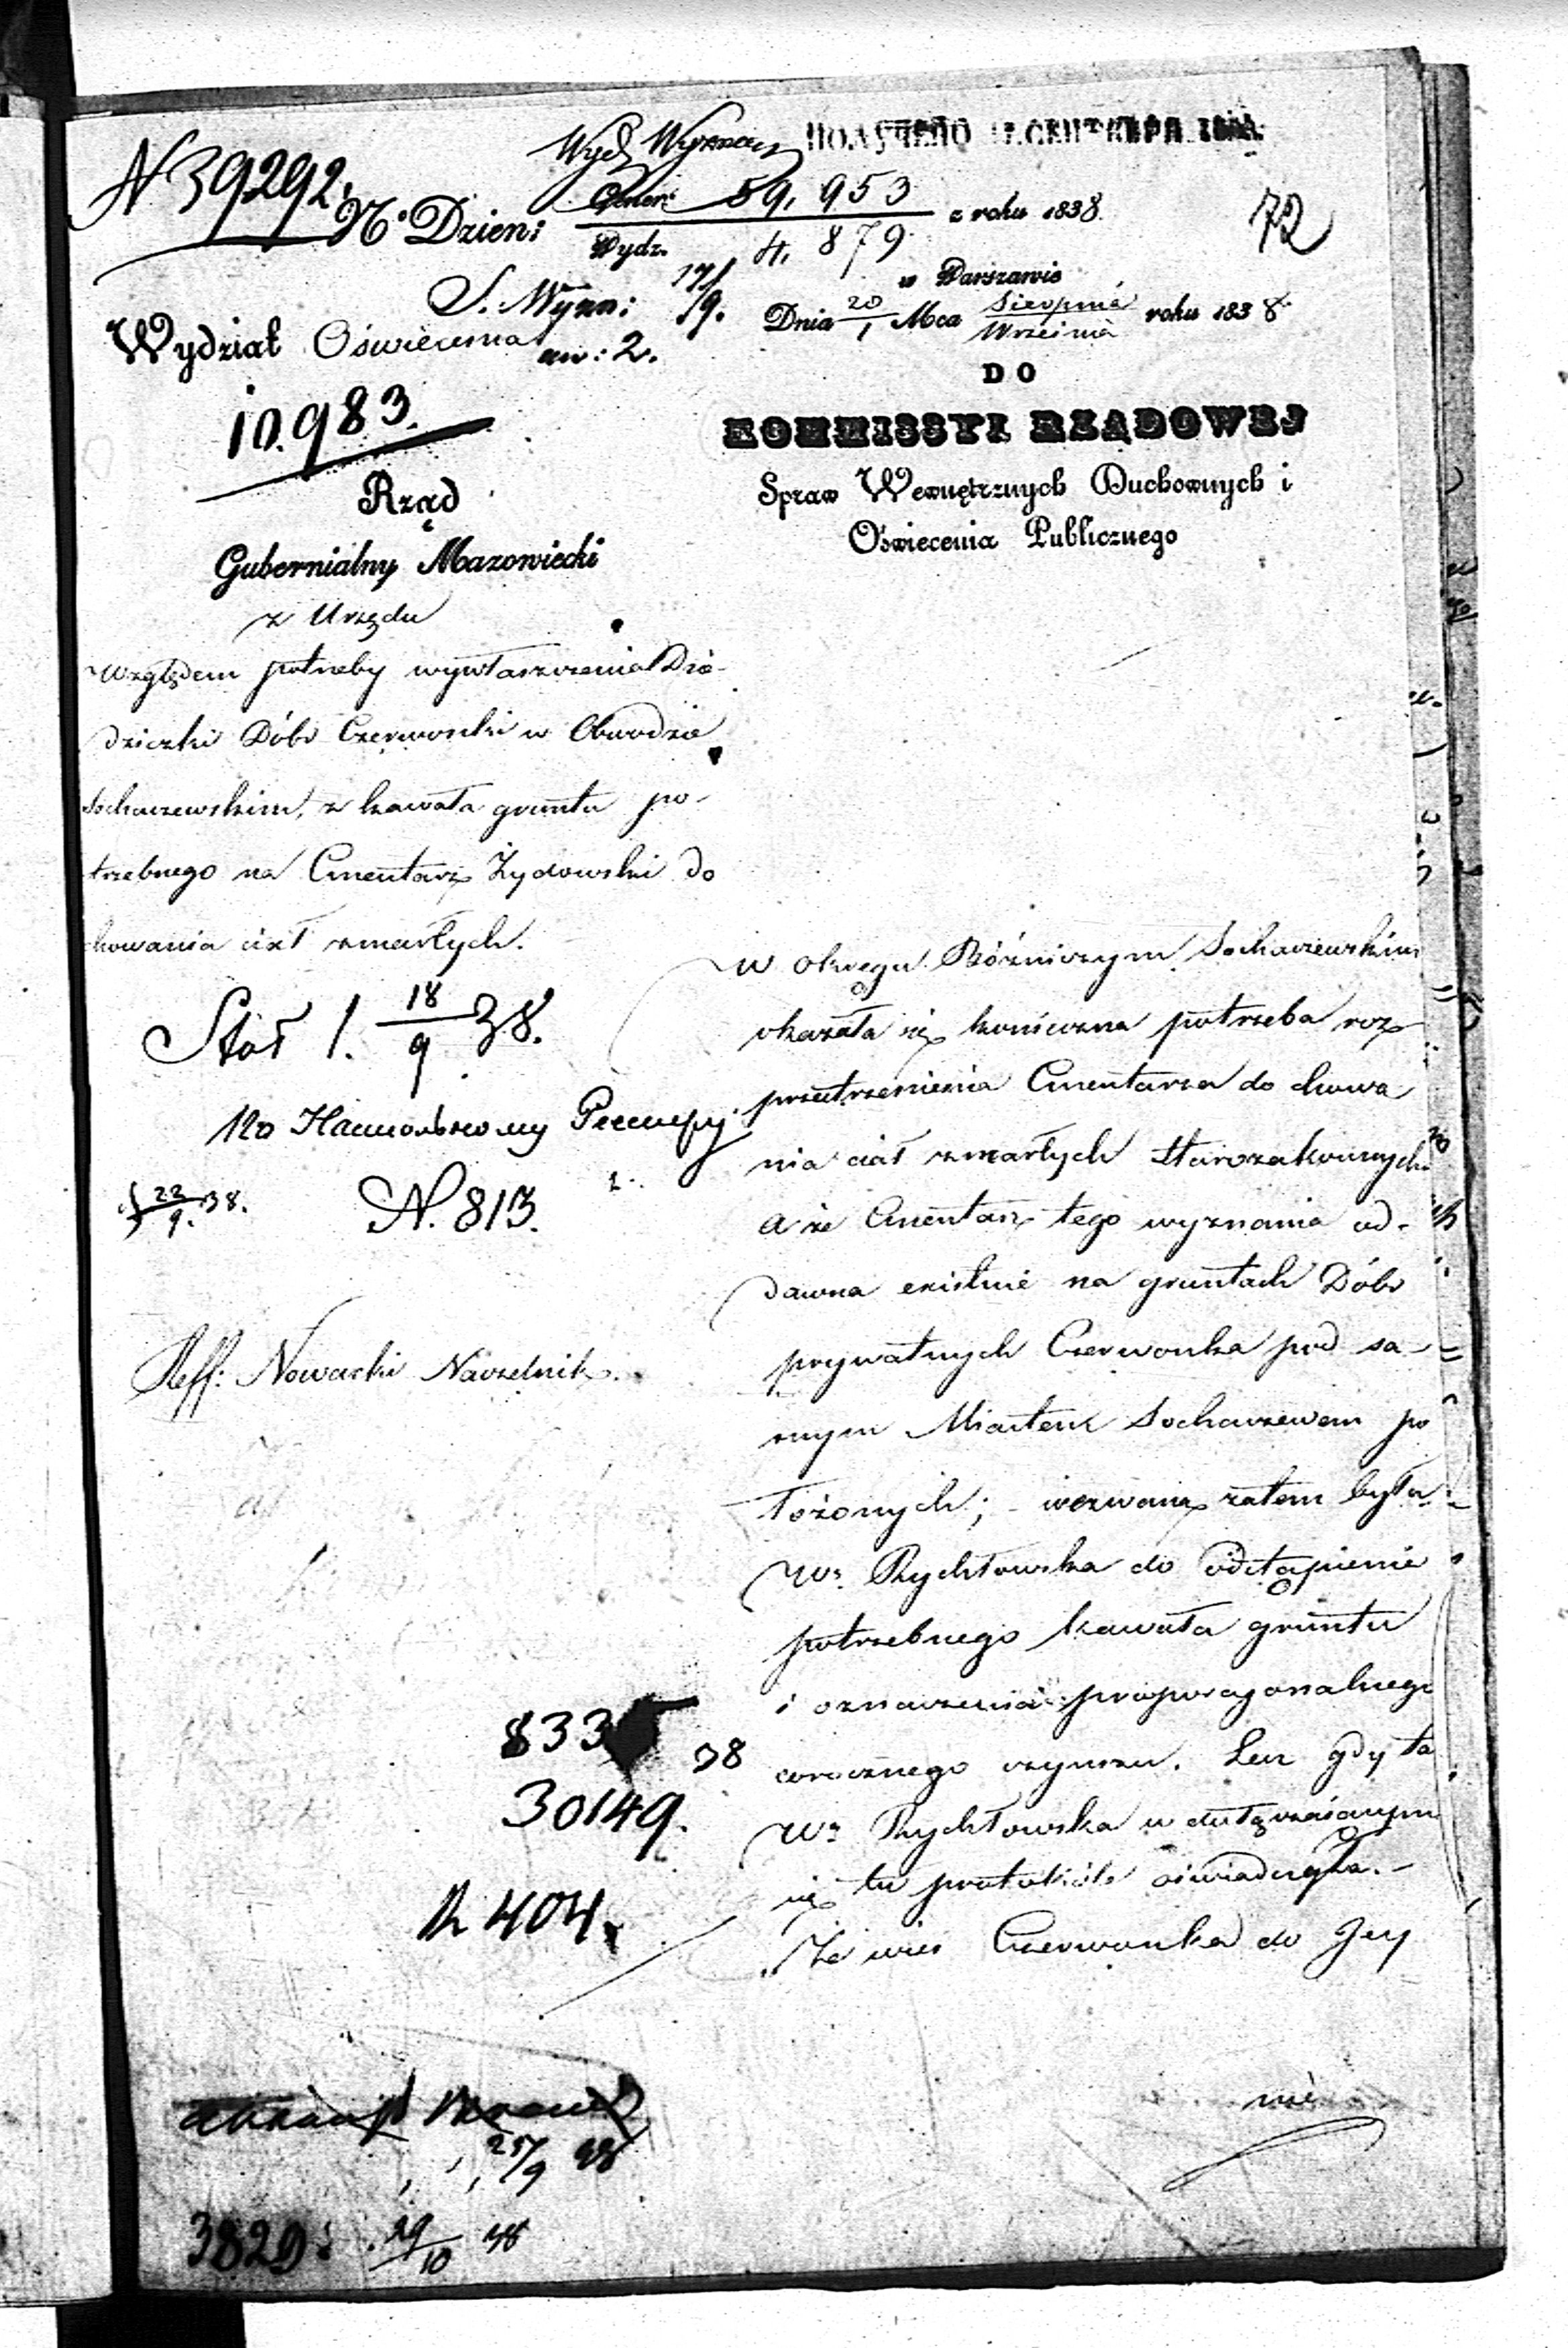 N 39292.
Wydz Wyznan
ПОЛУЧЕНО СЕНТЯБРЯ
72
No. Dzien: Gener: 59,953 z roku 1838.
Wydz. 4,879
S. Wyzn: 17/9.
w Warszawie
Dnia 20/1 Mca Sierpnia/Września roku 1838
Wydział Oświecenia
2.
10.983.
DO
KOMMISSYI RZĄDOWEJ
Spraw Wewnętrznych Duchownych i
Oświecenia Publicznego
Rząd
Gubernialny Mazowiecki
z Urzędu
Względem potrzeby wywłaszczenia Dzie-
dziczki Dóbr Czerwonki w Obwodzie
Sochaczewskim, z kawała gruntu po-
trzebnego na Cmentarz Żydowski do
chowania ciał zmarłych.
Stół 1. 18/9 38.
22/9. 38.
N. 813.
Reff: Nowacki Naczelnik.
W Okręgu Bóżniczym Sochaczewskim
okazała się konieczna potrzeba roz-
przestrzenienia Cmentarza do chowa
nia ciał zmarłych starozakonnych
a że Cmentarz tego wyznania od-
dawna existuie na gruntach Dóbr
prywatnych Czerwonka pod sa-
mym Miastem Sochaczewem po
łożonych; wezwaną zatem była
Wa. Rychłowska do odstąpienia
potrzebnego kawała gruntu
i oznaczenia proporcyonalnego
corocznego czynszu. Lecz gdy ta
Wa Rychłowska w dołączaiącym
się tu protokóle oświadczyła.-
„Że wieś Czerwonka do Jey
833
38
30149.
404.
nie
25/9 38
3829: 29/10 38